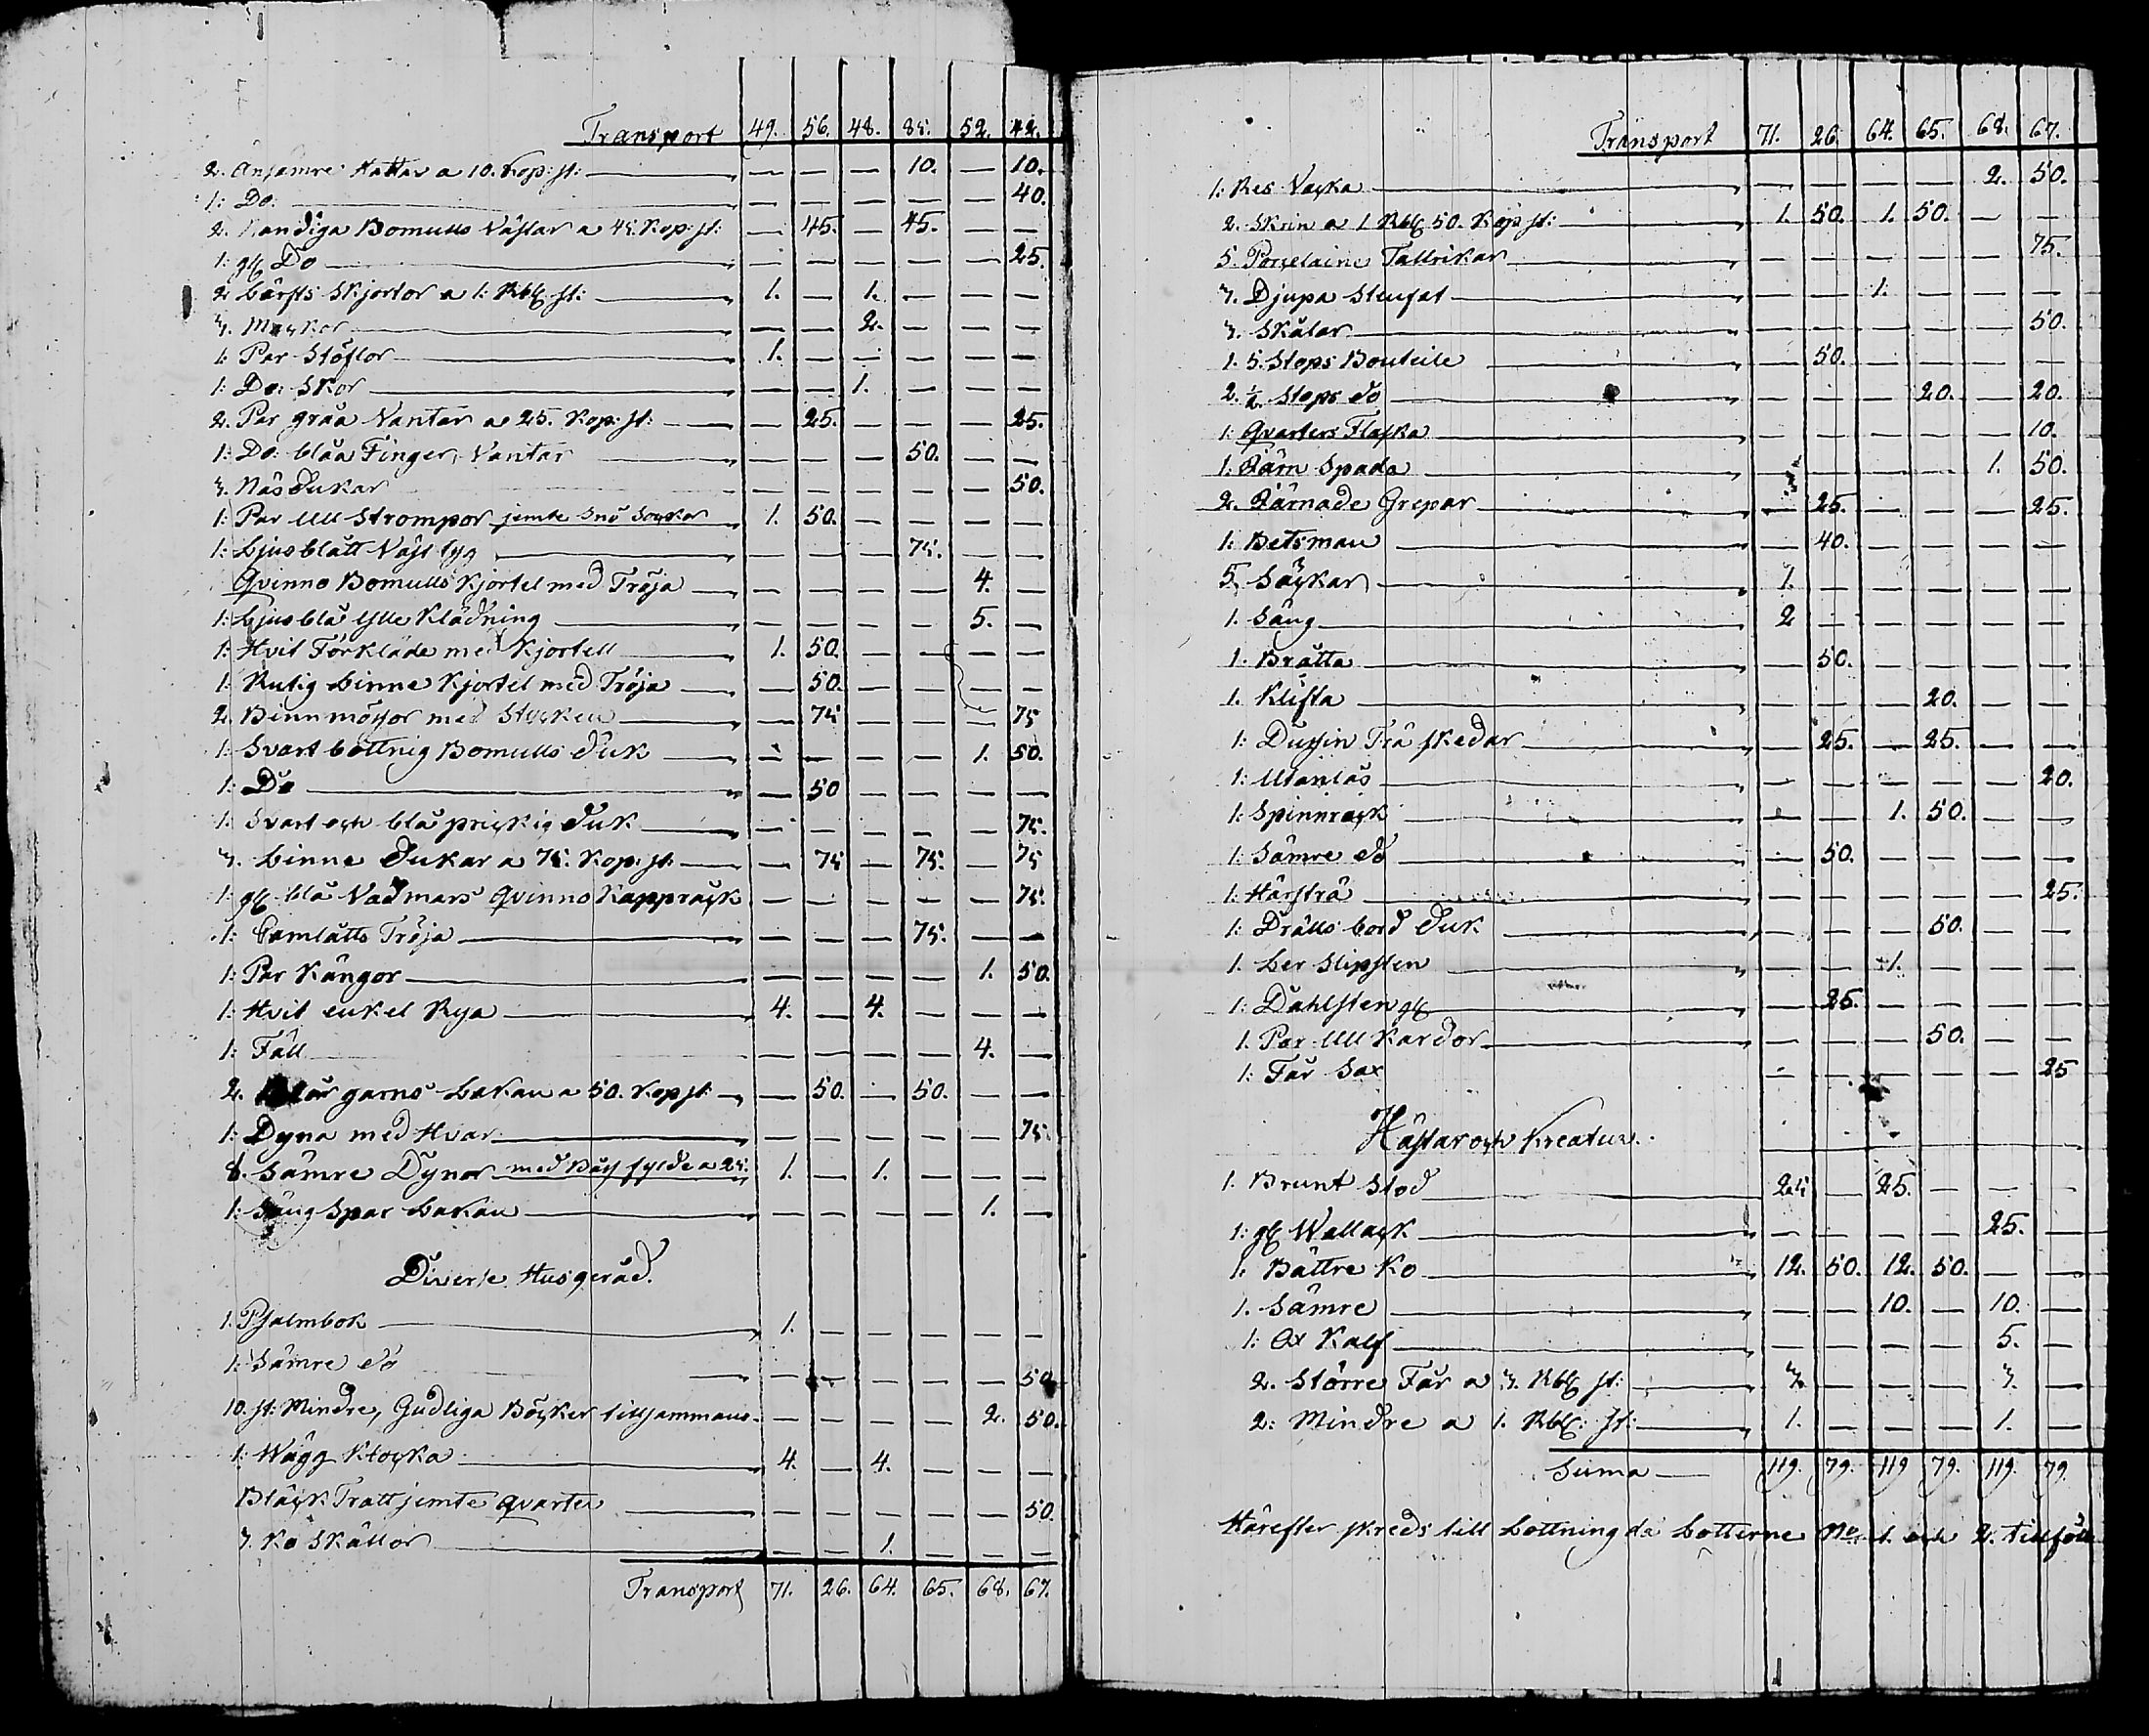 Transport 49. 56. 48. 85. 52. 42.
2. Ansämre Hattar a 10. Kop: st: — — — 10. — 10.
1: Do: — — — — — 40.
2. Randiga Bomulls Västar a 45. Kop: st: — 45. — 45. — —
1: gl Do — — — — — 25.
2 Lärfts Skjortor a 1: Rbl: st: 1. — 1. — — —
3. Mössor — — 2. — — —
1: Par Stöflor 1. — — — — —
1: Do: Skor — — 1. — — —
2. Par gråa Vantar a 25. Kop: st: — 25. — — — 25.
1: Do: blåa Finger Vantar — — — 50. — —
3. Näs dukar — — — — — 50.
1: Par Ull Strompor jemte Snö Sockor 1. 50. — — — —
1: Ljusblått Väst tyg — — — 75. — —
Qvinno Bomulls Kjortel med Tröja — — — — 4. —
1: Ljusblå Ylle Klädning — — — — 5. —
1: Hvit Förkläde med Kjortell 1. 50. — — — —
1: Rutig Linne Kjortel med Tröja — 50. — — — —
2. Binnmössor med Stycken — 75 — — — 75
1: Svart bottnig Bomulls duk — — — — 1. 50.
1: Do — 50 — — — —
1: Svart och blå prickig duk — — — — — 75.
3. Linne dukar a 75. Kop: st: — 75 — 75. — 75
1: gl blå Vadmars Qvinno Kappräck — — — — — 75.
1: Camlåtts Tröja — — — 75. — —
1: Par Kängor — — — — 1. 50.
1: Hvit enkel Rya 4. — 4. — — —
1: Fäll — — — — 4. —
2. Blår garns Lakan a 50. Kop st: — 50. — 50. — —
1: Dyna med Hvar — — — — — 75.
8. Sämre Dynor med Bäss fylde a 25. 1. — 1. — — —
1: Säng Spar Lakan — — — — 1. —
Diverse Husgeråd.
1. Psalmbok 1. — — — — —
1: Sämre do — — — — — 50
10. st: Mindre, Gudliga Böcker tillsammans — — — — 2. 50.
1: Wägg Klocka 4. — 4. — — —
Bläck Tratt jemte qvarter — — — — — 50.
3. Ko Skällor — — 1. — — —
Transport 71. 26. 64. 65. 68. 67.
Transport 71. 26. 64. 65. 68. 67.
1: Res Vacka — — — — 2. 50.
2. Skrin a 1 Rbl 50. Kop st: 1. 50. 1. 50. — —
5. Porcelaines Tallrikar — — — — — 75.
3. Djupa Stenfat — — 1. — — —
3. Skålar — — — — — 50.
1. 5. Stops Bouteile — 50. — — — —
2. ½ Stops do — — — 20. — 20.
1: Qvarters Flaska — — — — — 10.
1. Järn Spada — — — — 1. 50.
2. Järnade Grepar — 25. — — — 25.
1: Betsman — 40. — — — —
5. Säckar 1. — — — — —
1. Säng 2 — — — — —
1. Brätta — 50. — — — —
1. Klifta — — — 20. — —
1: Dussin Trä skedar — 25. — 25. — —
1: Utanlås — — — — — 20.
1: Spinnrack — — 1. 50. — —
1: Sämre do — 50. — — — —
1: Härsträ — — — — — 25.
1: Drälls bord duk — — — 50. — —
1. Ler Slipsten — — 1. — — —
1: Dahlsten gl — 25. — — — —
1. Par Ull Kardor — — — 50. — —
1: Får Sax — — — — — 25
Hästar och Kreatur.
1. Brunt Stod 25 — 25. — — —
1: gl Wallack — — — — 25. —
1. Bättre Ko 12. 50. 12. 50. — —
1. Sämre — — 10. — 10. —
1: Ox Kalf — — — — 5. —
2. Större Får a 3. Rbl st: 3. — — — 3. —
2: Mindre a 1. Rbl: st: 1. — — — 1. —
Suma 119. 79. 119 79. 119. 79.
Härefter skreds till Lottning då Lotterne No 1. och 2. tillföll